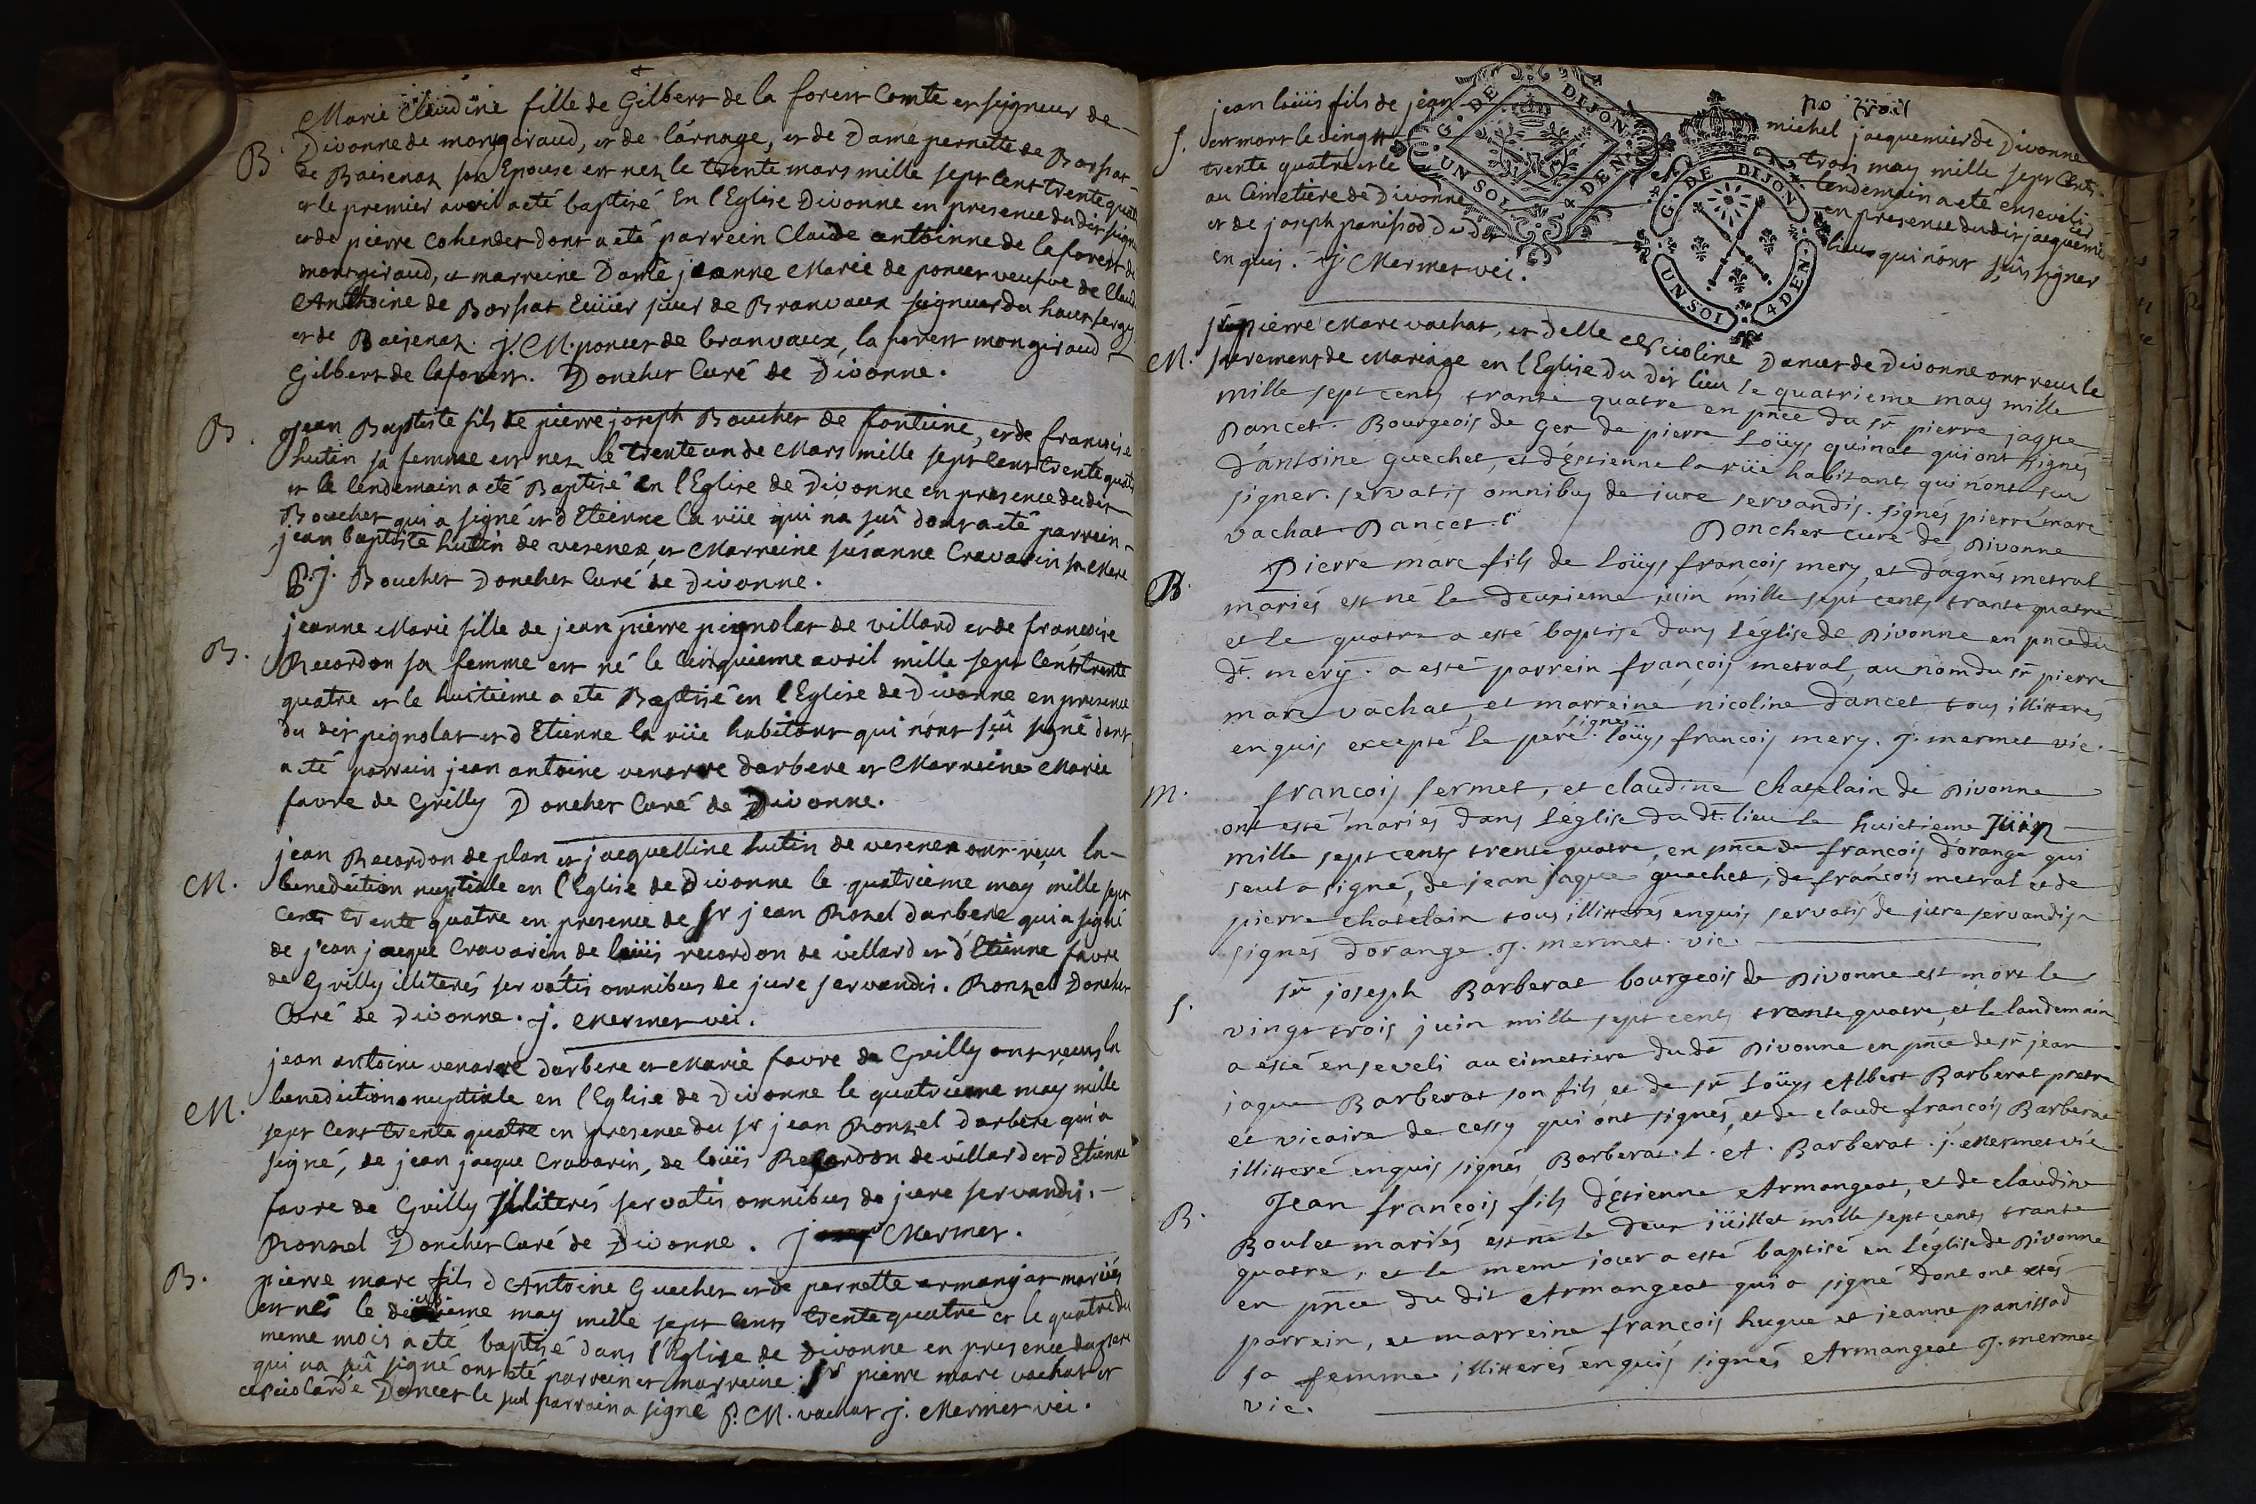 Marie Claudine fille de Gilbert de la forest Comte et seigneur de
B. Divonne de montgiraud, et de l'arnage, et de Dame pernette de Borsat
de Baisenas son Epouse est nez le trente mars mille sept cent trente quatre
et le premier avril a eté baptisé En l'Eglise Divonne en presence du dit seigneur
et de pierre Cohendet dont a eté parrein Claude antoinne de laforest de
montgiraud, et marreine Dame jeanne Marie de poncet veufve de Claude
Anthoine de Borsat Ecuier sieur de Branvaux seigneur du haut sergy
et de Baisenas. J. M. poncet de branvaux, la forest mongiraud
Gilbert de laforest. Doncher Curé de Divonne.
B. Jean Baptiste fils de pierre joseph Boucher de fonteine, et de francoise
hutin sa femme est nez le trente un de Mars mille sept cent trente quatre
et le lendemain a eté Baptisé en l'Eglise de Divonne en presence du dit
Boucher qui a signé et d'Etienne la rüe qui na sçû dont a eté parrein
jean baptiste hutin de vesenex et Marreine susanne Cravarin sa Mere
P. J. Boucher Doncher Curé de Divonne.
jeanne Marie fille de jean pierre pignolat de villard et de francoise
B. Recordon sa femme est né le Cinquieme avril mille sept cents trente
quatre et le huitieme a ete Baptisé en l'Eglise de Divonne en presence
du dit pignolat et d'Etienne la rüe habitant qui n'ont sçû signé dont
a eté parrein jean antoine venarre d'arbere et Marreine Marie
favre de Grilly Doncher Curé de Divonne.
jean Recordon de plan et jacquelline hutin de vesenex ont reçu la
M. benediction nuptiale en l'Eglise de Divonne le quatrieme may mille sept
cents trente quatre en presence de sr jean Ronzel d'arbere qui a signé
de jean jacque Cravarin de loüis recordon de villard et d'Etienne favre
de Grilly illiterés servatis omnibus de jure servandis. Ronzel Doncher
Curé de Divonne. j. Mermet vic.
jean antoine venarre d'arbere et Marie favre de Grilly ont reçus la
M. benediction nuptiale en l'Eglise de Divonne le quatrieme may mille
sept cent trente quatre en presence du sr jean Ronzel d'arbere qui a
signé, de jean jacque Cravarin, de loüis Recordon de villard et d'Etienne
favre de Grilly illiterés servatis omnibus de jure servandis.
Ronzel Doncher Curé de Divonne. j Mermet.
B. pierre marc fils d'Antoine Guechet et de pernette armanjat mariés
est né le deuxieme may mille sept cents trente quatre et le quatre du
meme mois a eté baptisé dans l'Eglise de Divonne en presence du pere
qui na sçû signé ont eté parrein et marreine sr pierre marc vachat et
Dancet le seul parrain a signé P. M. vachat J. Mermet vic.
jean loüis fils de jean michel jacquemier de Divonne
S. est mort le vingt trois may mille sept cents
trente quatre et le lendemain a eté enseveli
au Cimetiere de Divonne en presence du dit jacquemier
et de joseph panissod du dit lieu qui n'ont sçûs signer
enquis. J Mermet vic.
G. DE DIJON
UN SOL 4 DEN.
G. DE DIJON
UN SOL 4 DEN.
sr pierre Marc vachat, et Delle Dancet de Divonne ont reçu le
M. sacrement de Mariage en l'Eglise du dit lieu le quatrieme may mille
mille sept cents trante quatre en pnce du sr pierre jaque
Dancet. Bourgeois de Gex de pierre Loüys quinat qui ont signés
d'antoine guechet, et d'Estienne la rüe habitants qui n'ont sçu
signer. servatis omnibus de iure servandis. signés pierre marc
vachat Dancet. Doncher curé de Divonne
Pierre marc fils de Loüys françois mery, et d'agnés metral
B. mariés est né le deuxieme juin mille sept cents trante quatre
et le quatre a esté baptisé dans l'église de Divonne en pnce du
dt. mery. a esté parrein françois metral, au nom du sr pierre
marc vachat, et marreine nicoline dancet tous illitterés
enquis excepté le pere. signé loüys francois mery. J. mermet vic.
M. françois sermet, et claudine chatelain de Divonne
ont esté mariés dans l'église du dt. lieu le huictieme Jüin
mille sept cents trente quatre, en pnce de françois d'orange qui
seul a signé, de jean jaque guechet, de françois metral et de
pierre chatelain tous illitterés enquis servatis de jure servandis
signés d'orange. J. mermet. vic.
sr joseph Barberat bourgeois de Divonne est mort le
S. vingt trois juin mille sept cents trante quatre, et le landemain
a esté enseveli au cimetiere du dt Divonne en pnce de sr jean
jaque Barberat son fils, et de sr Loüys Albert Barberat pretre
et vicaire de cessy qui ont signés, et de claude françois Barberat
illitteré enquis signés Barberat. L. A. Barberat. j. Mermet vic
Jean françois fils d'Etienne Armangeat, et de claudine
B. Boulet mariés est né le deux jüillet mille sept cents trante
quatre, et le meme jour a esté baptisé en l'église de Divonne
en pnce du dit Armangeat qui a signé dont ont estés
parrein, et marreine françois hugue et jeanne panissod
sa femme illitterés enquis signés Armangeat J. mermet
vic.